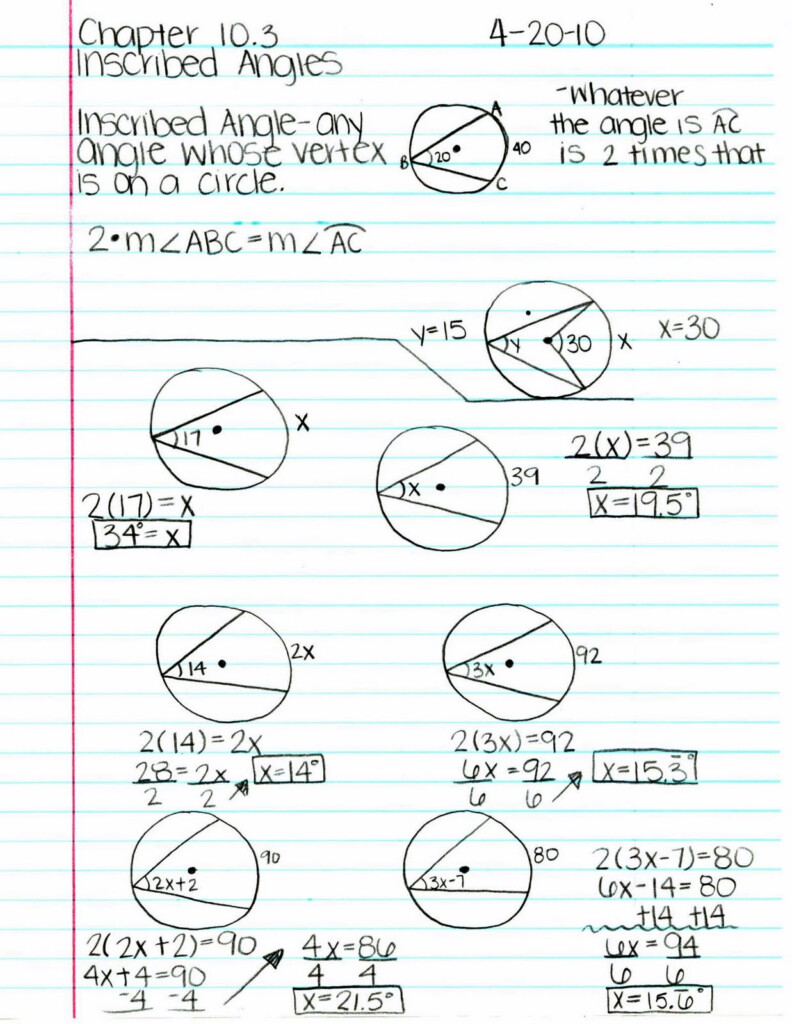 Chapter 10.3
4-20-10
Inscribed Angles
Inscribed Angle-any
angle whose vertex
is on a circle.
A
B
20
C
40
-Whatever
the angle is A͡C
is 2 times that
2•m∠ABC=m∠A͡C
y=15
y
30
x
x=30
17
x
2(17)=x
34°=x
x
39
2(x)=39
2 2
x=19.5°
14
2x
2(14)=2x
28=2x
2 2
x=14°
3x
92
2(3x)=92
6x=92
6 6
x=15.3̅°
2x+2
90
2(2x+2)=90
4x+4=90
-4 -4
4x=86
4 4
x=21.5°
3x-7
80
2(3x-7)=80
6x-14=80
+14 +14
6x=94
6 6
x=15.6̅°